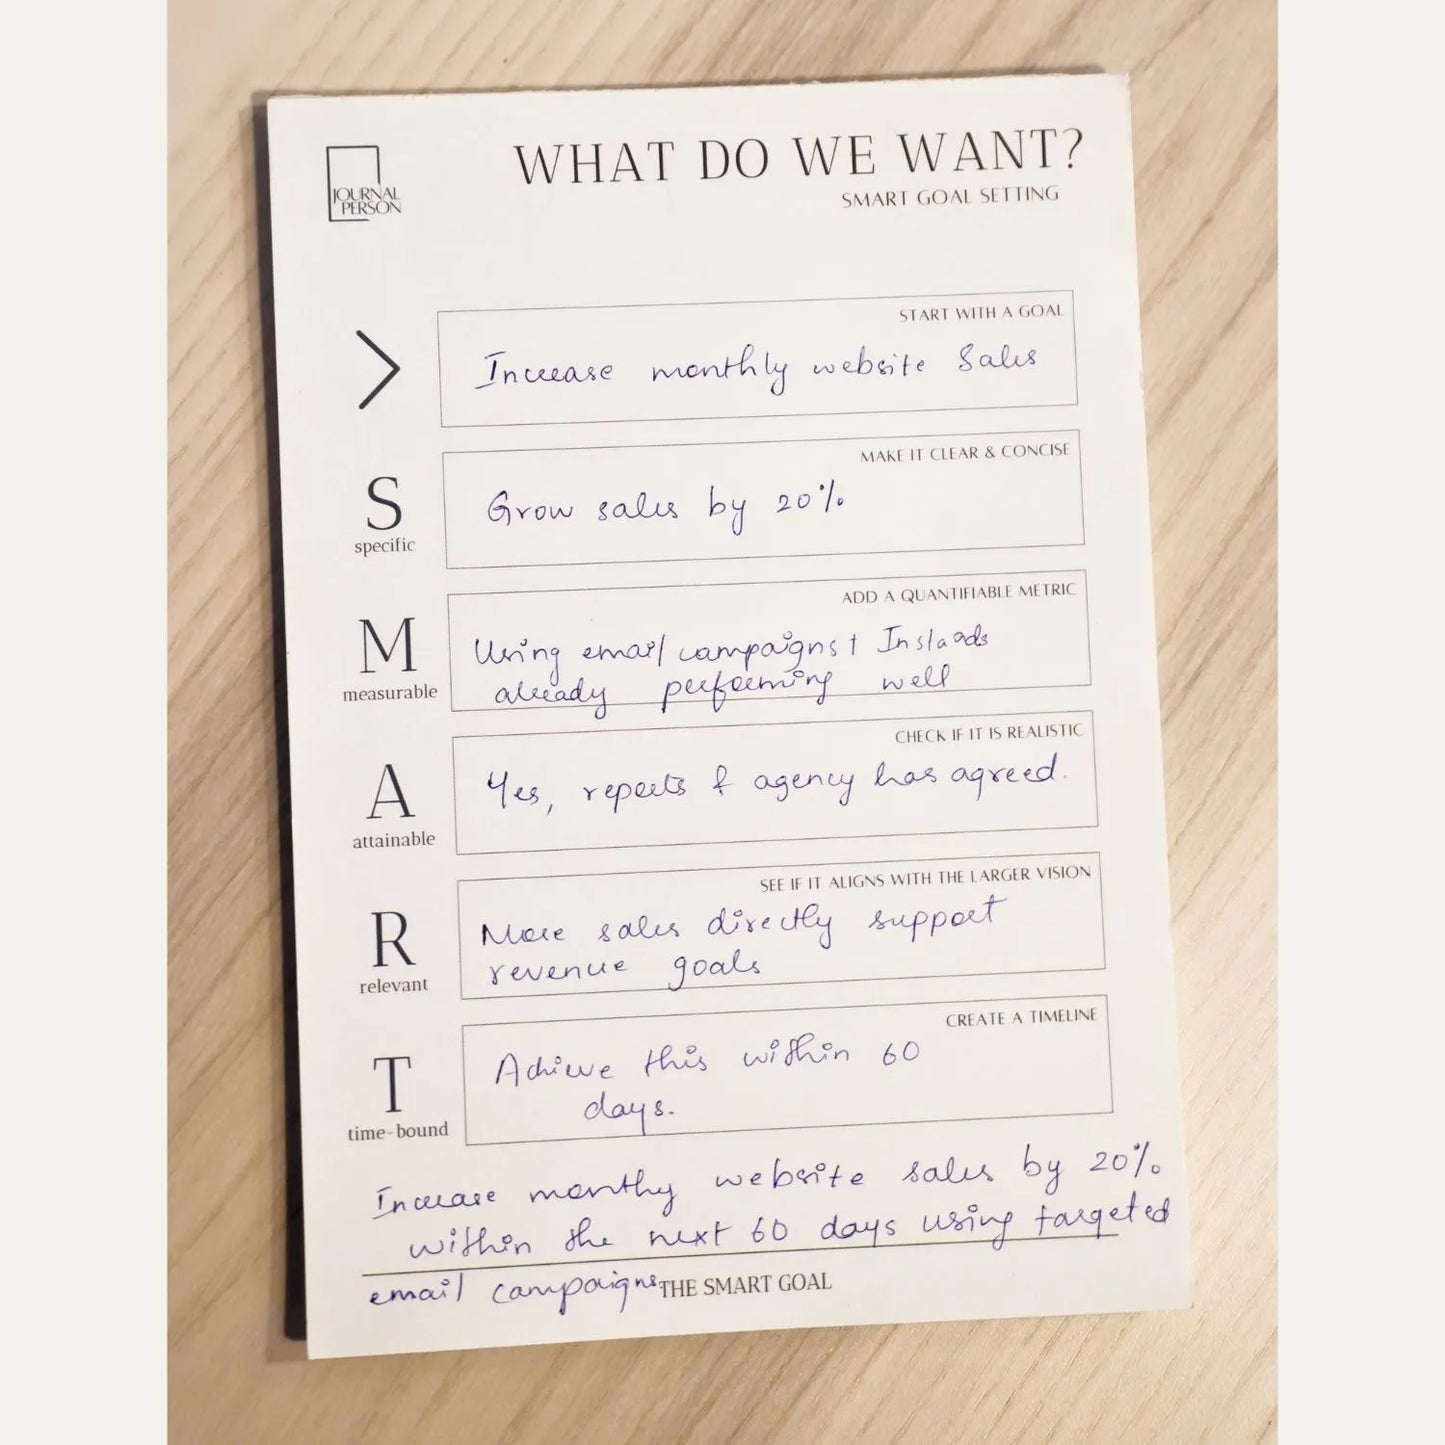 JOURNAL
PERSON
WHAT DO WE WANT?
SMART GOAL SETTING
START WITH A GOAL
Increase monthly website Sales
MAKE IT CLEAR & CONCISE
S
specific
Grow sales by 20%
ADD A QUANTIFIABLE METRIC
M
measurable
Using email campaigns + Insta ads
already performing well
CHECK IF IT IS REALISTIC
A
attainable
Yes, reports & agency has agreed.
SEE IF IT ALIGNS WITH THE LARGER VISION
R
relevant
More sales directly support
revenue goals
CREATE A TIMELINE
T
time-bound
Achieve this within 60
days.
Increase monthly website sales by 20%
within the next 60 days using targeted
email campaigns.
THE SMART GOAL